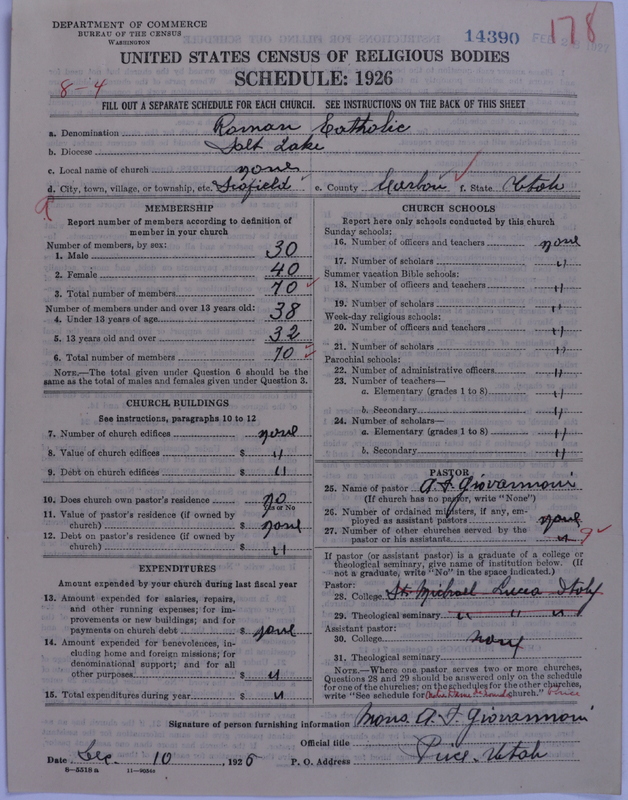 DEPARTMENT OF COMMERCE
BUREAU OF THE CENSUS
WASHINGTON
14390
178
UNITED STATES CENSUS OF RELIGIOUS BODIES
SCHEDULE: 1926
8-4
FILL OUT A SEPARATE SCHEDULE FOR EACH CHURCH. SEE INSTRUCTIONS ON THE BACK OF THIS SHEET
a. Denomination Roman Catholic
b. Diocese Salt Lake
c. Local name of church none
d. City, town, village, or township, etc. Scofield e. County Carbon f. State Utah
MEMBERSHIP
Report number of members according to definition of member in your church
Number of members, by sex:
1. Male 30
2. Female 40
3. Total number of members 70
Number of members under and over 13 years old:
4. Under 13 years of age 38
5. 13 years old and over 32
6. Total number of members 70
NOTE.—The total given under Question 6 should be the same as the total of males and females given under Question 3.
CHURCH BUILDINGS
See instructions, paragraphs 10 to 12
7. Number of church edifices none
8. Value of church edifices $ "
9. Debt on church edifices $ "
10. Does church own pastor's residence no
Yes or No
11. Value of pastor's residence (if owned by church) $ none
12. Debt on pastor's residence (if owned by church) $ "
EXPENDITURES
Amount expended by your church during last fiscal year
13. Amount expended for salaries, repairs, and other running expenses; for improvements or new buildings; and for payments on church debt $ none
14. Amount expended for benevolences, including home and foreign missions; for denominational support; and for all other purposes $ "
15. Total expenditures during year $ "
CHURCH SCHOOLS
Report here only schools conducted by this church
Sunday schools:
16. Number of officers and teachers none
17. Number of scholars "
Summer vacation Bible schools:
18. Number of officers and teachers "
19. Number of scholars "
Week-day religious schools:
20. Number of officers and teachers "
21. Number of scholars "
Parochial schools:
22. Number of administrative officers "
23. Number of teachers—
a. Elementary (grades 1 to 8) "
b. Secondary "
24. Number of scholars—
a. Elementary (grades 1 to 8) "
b. Secondary "
PASTOR
25. Name of pastor A. F. Giovannoni
(If church has no pastor, write "None")
26. Number of ordained ministers, if any, employed as assistant pastors none
27. Number of other churches served by the pastor or his assistants " 9
If pastor (or assistant pastor) is a graduate of a college or theological seminary, give name of institution below. (If not a graduate, write "No" in the space indicated.)
Pastor:
28. College St. Michael Lucca Italy
29. Theological seminary " " "
Assistant pastor:
30. College none
31. Theological seminary
NOTE.—Where one pastor serves two or more churches, Questions 28 and 29 should be answered only on the schedule for one of the churches; on the schedules for the other churches, write "See schedule for church." Price
Signature of person furnishing information Mons. A. F. Giovannoni
Official title
Date Dec. 10, 1926 P. O. Address Price - Utah
8-5518a 11-90544